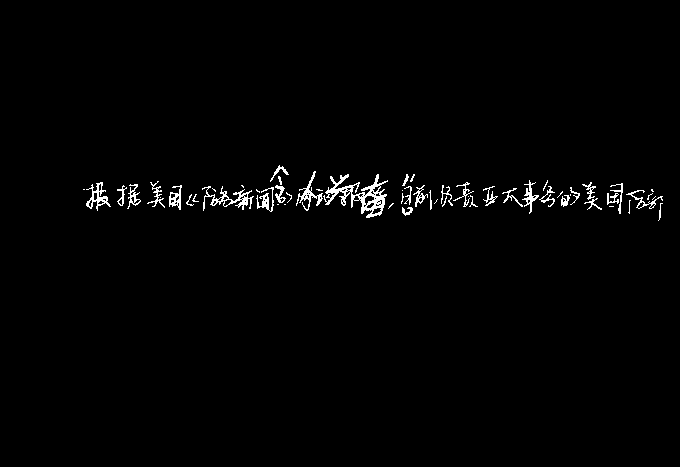 根据美国《防务新闻》的报道,目前负责亚太事务的美国防部